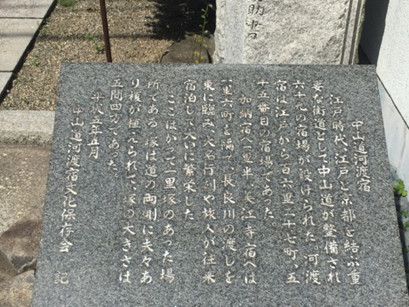 助吾
中山道河渡宿
江戸時代、江戸と京都を結ぶ重
要な街道として中山道が整備され
六十九の宿場が設けられた 河渡
宿は江戸から百六里二十七町、五
十五番目の宿場であった
加納宿へ一里半、美江寺宿へは
一里六町を隔て、長良川の渡しを
東に臨み、大名行列や旅人が往来
宿泊して大いに繁栄した
ここはかつて一里塚のあった場
所である 塚は道の両側に夫々あ
り榎が植えられて、塚の大きさは
五間四方であった。
平成五年五月
中山道河渡宿文化保存会 記